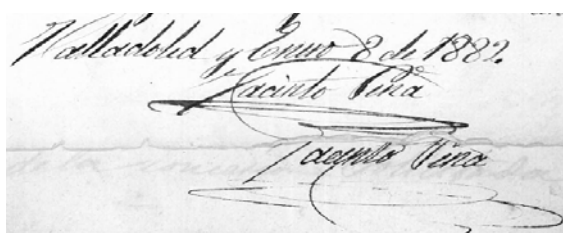 Valladolid y Enero 8 de 1882.
Jacinto Piña
Jacinto Piña
de la